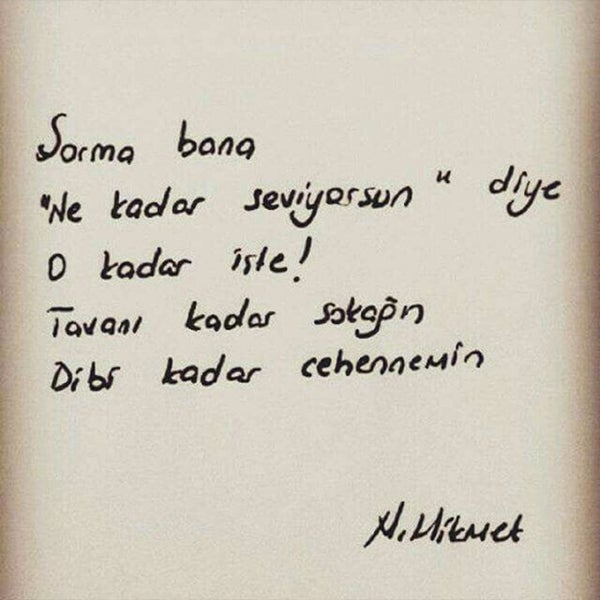 Sorma bana
"Ne kadar seviyorsun" diye
O kadar işte!
Tavanı kadar sokağın
Dibi kadar cehennemin
N. Hikmet